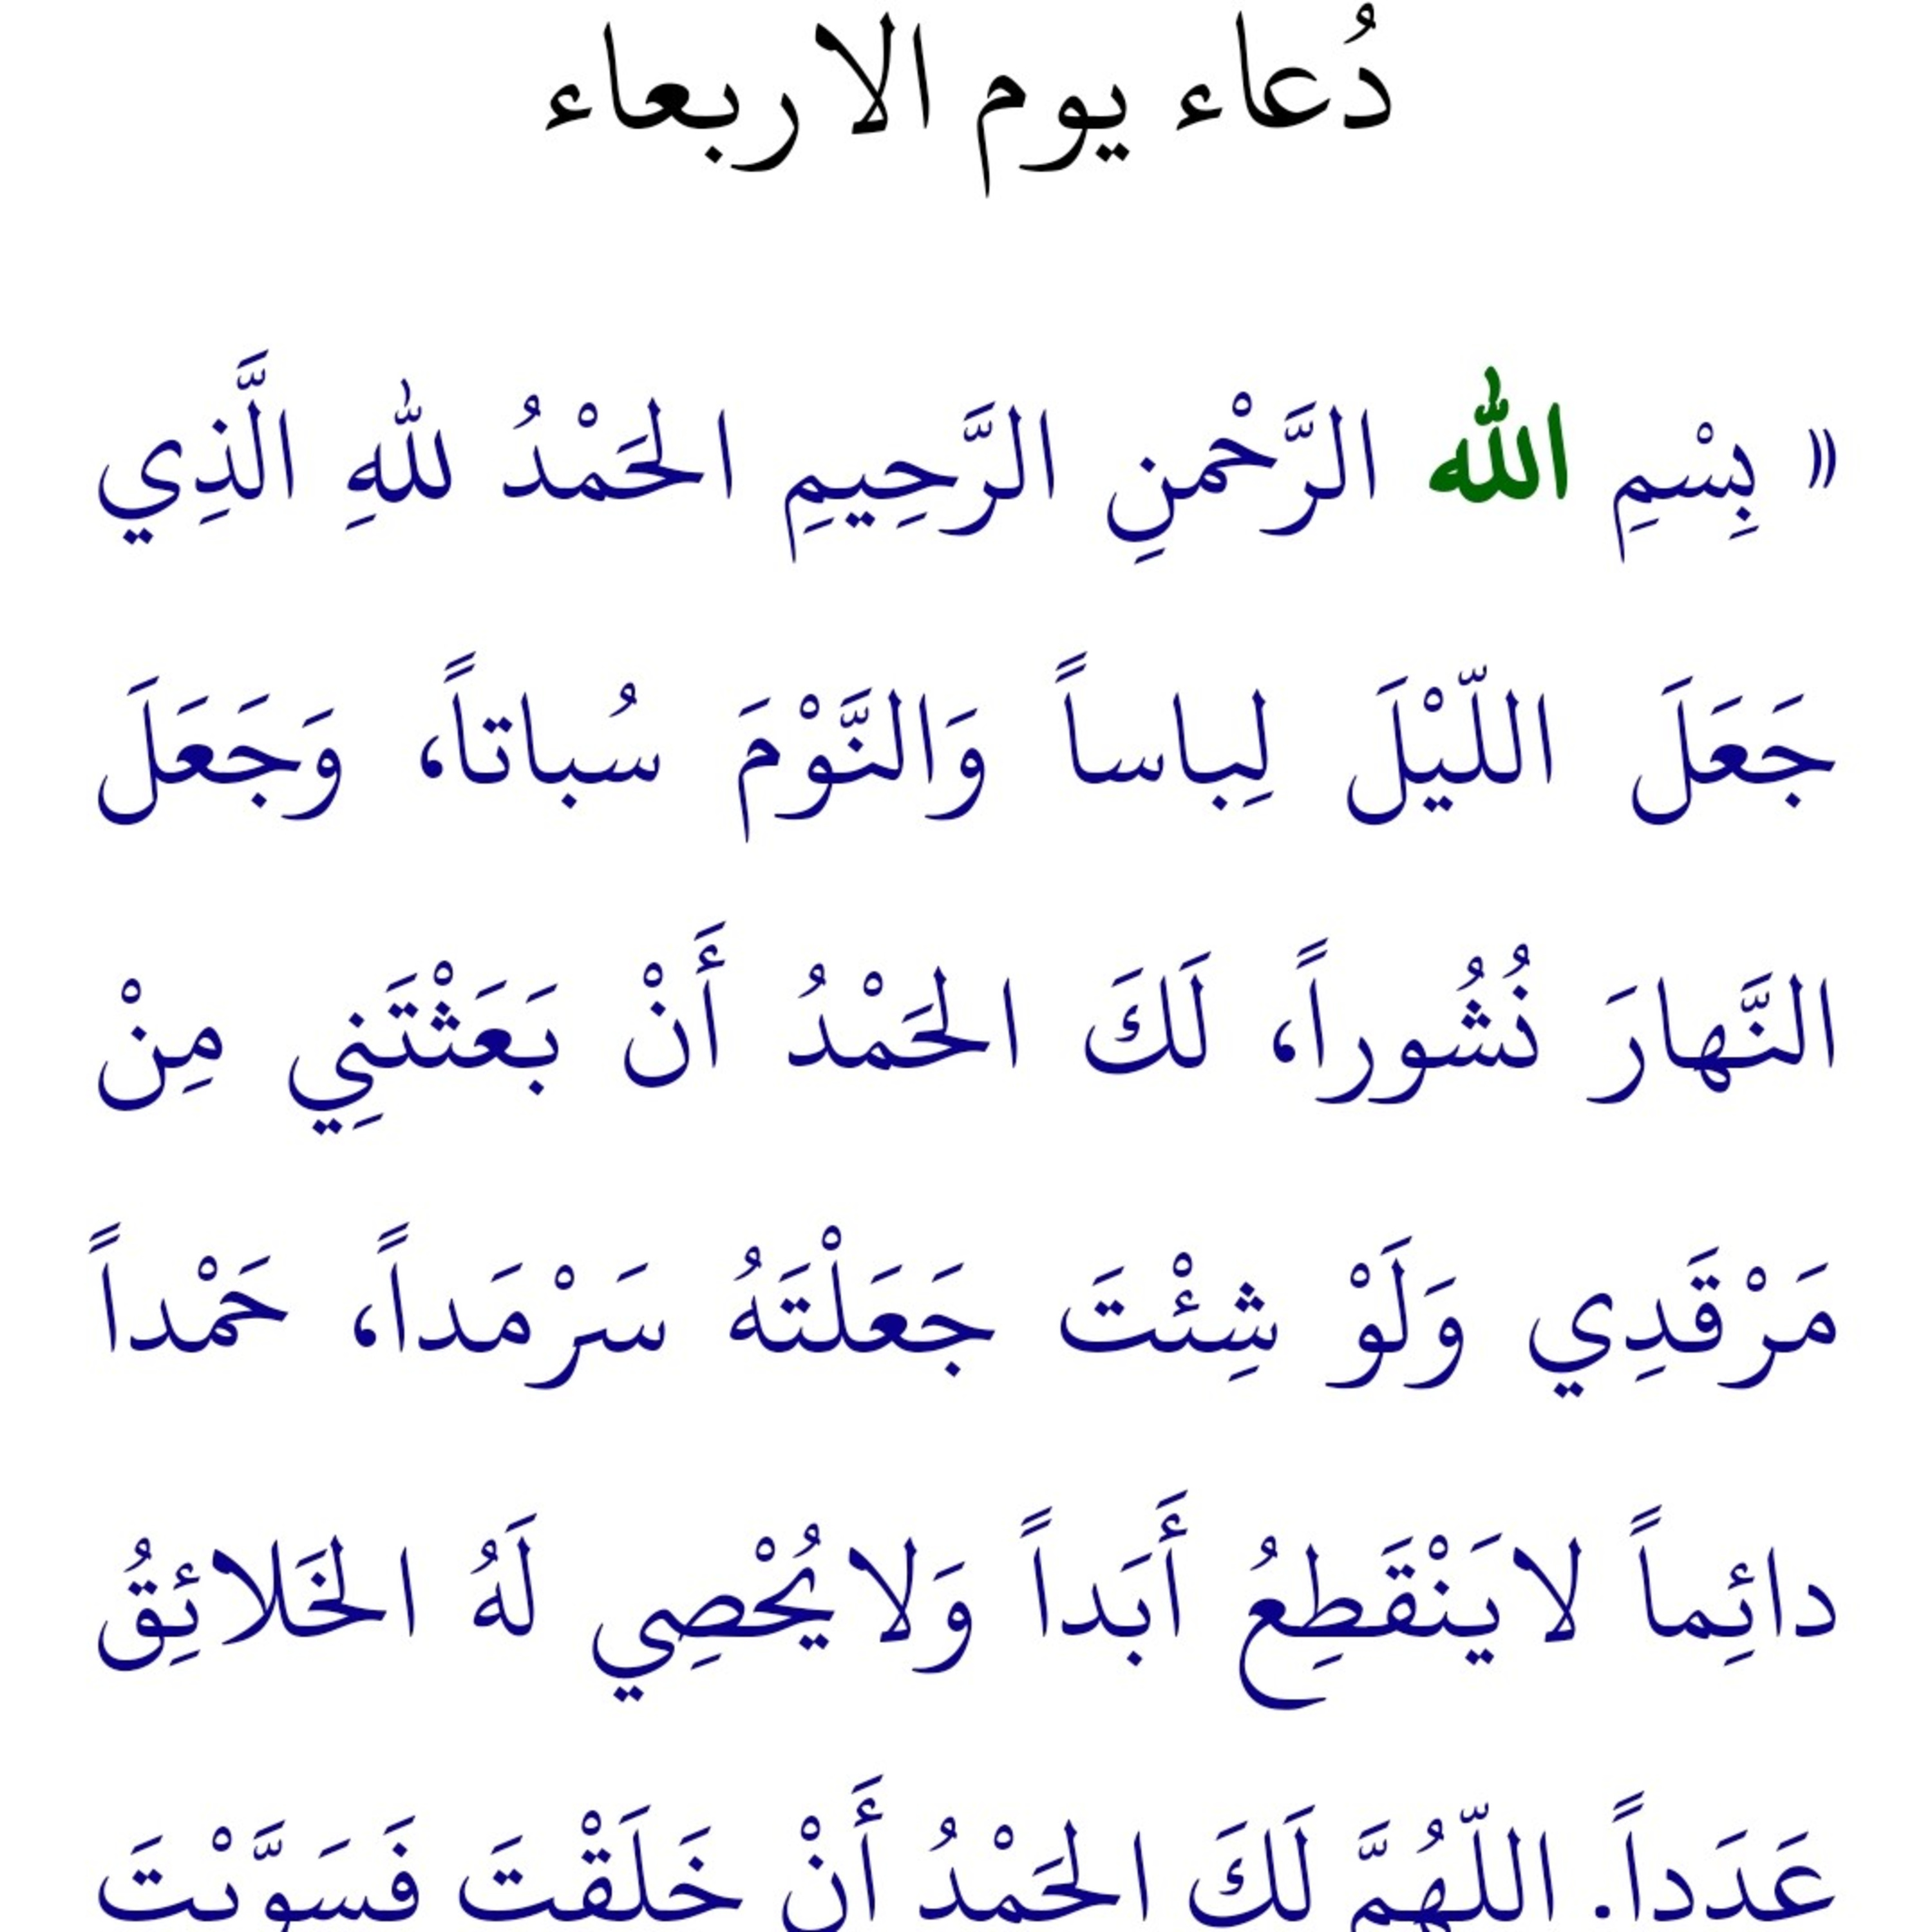 دُعاء يوم الا ربعاء
(( بِسْمِ الله الرَّحْمنِ الرَّحِيمِ الحَمْدُ للهِ الَّذِي
جَعَلَ اللّيْلَ لِباساً وَالنَّوْمَ سُباتاً، وَجَعَلَ
النَّهارَ نُشُوراً، لَكَ الحَمْدُ أَنْ بَعَثْتَنِي مِنْ
مَرْقَدِي وَلَوْ شِئْتَ جَعَلْتَهُ سَرْمَداً، حَمْداً
دائِماً لا يَنْقَطِعُ أَبَداً وَلا يُحْصِي لَهُ الخَلائِقُ
عَدَداً. اللّهُمَّ لَكَ الحَمْدُ أَنْ خَلَقْتَ فَسَوَّيْتَ